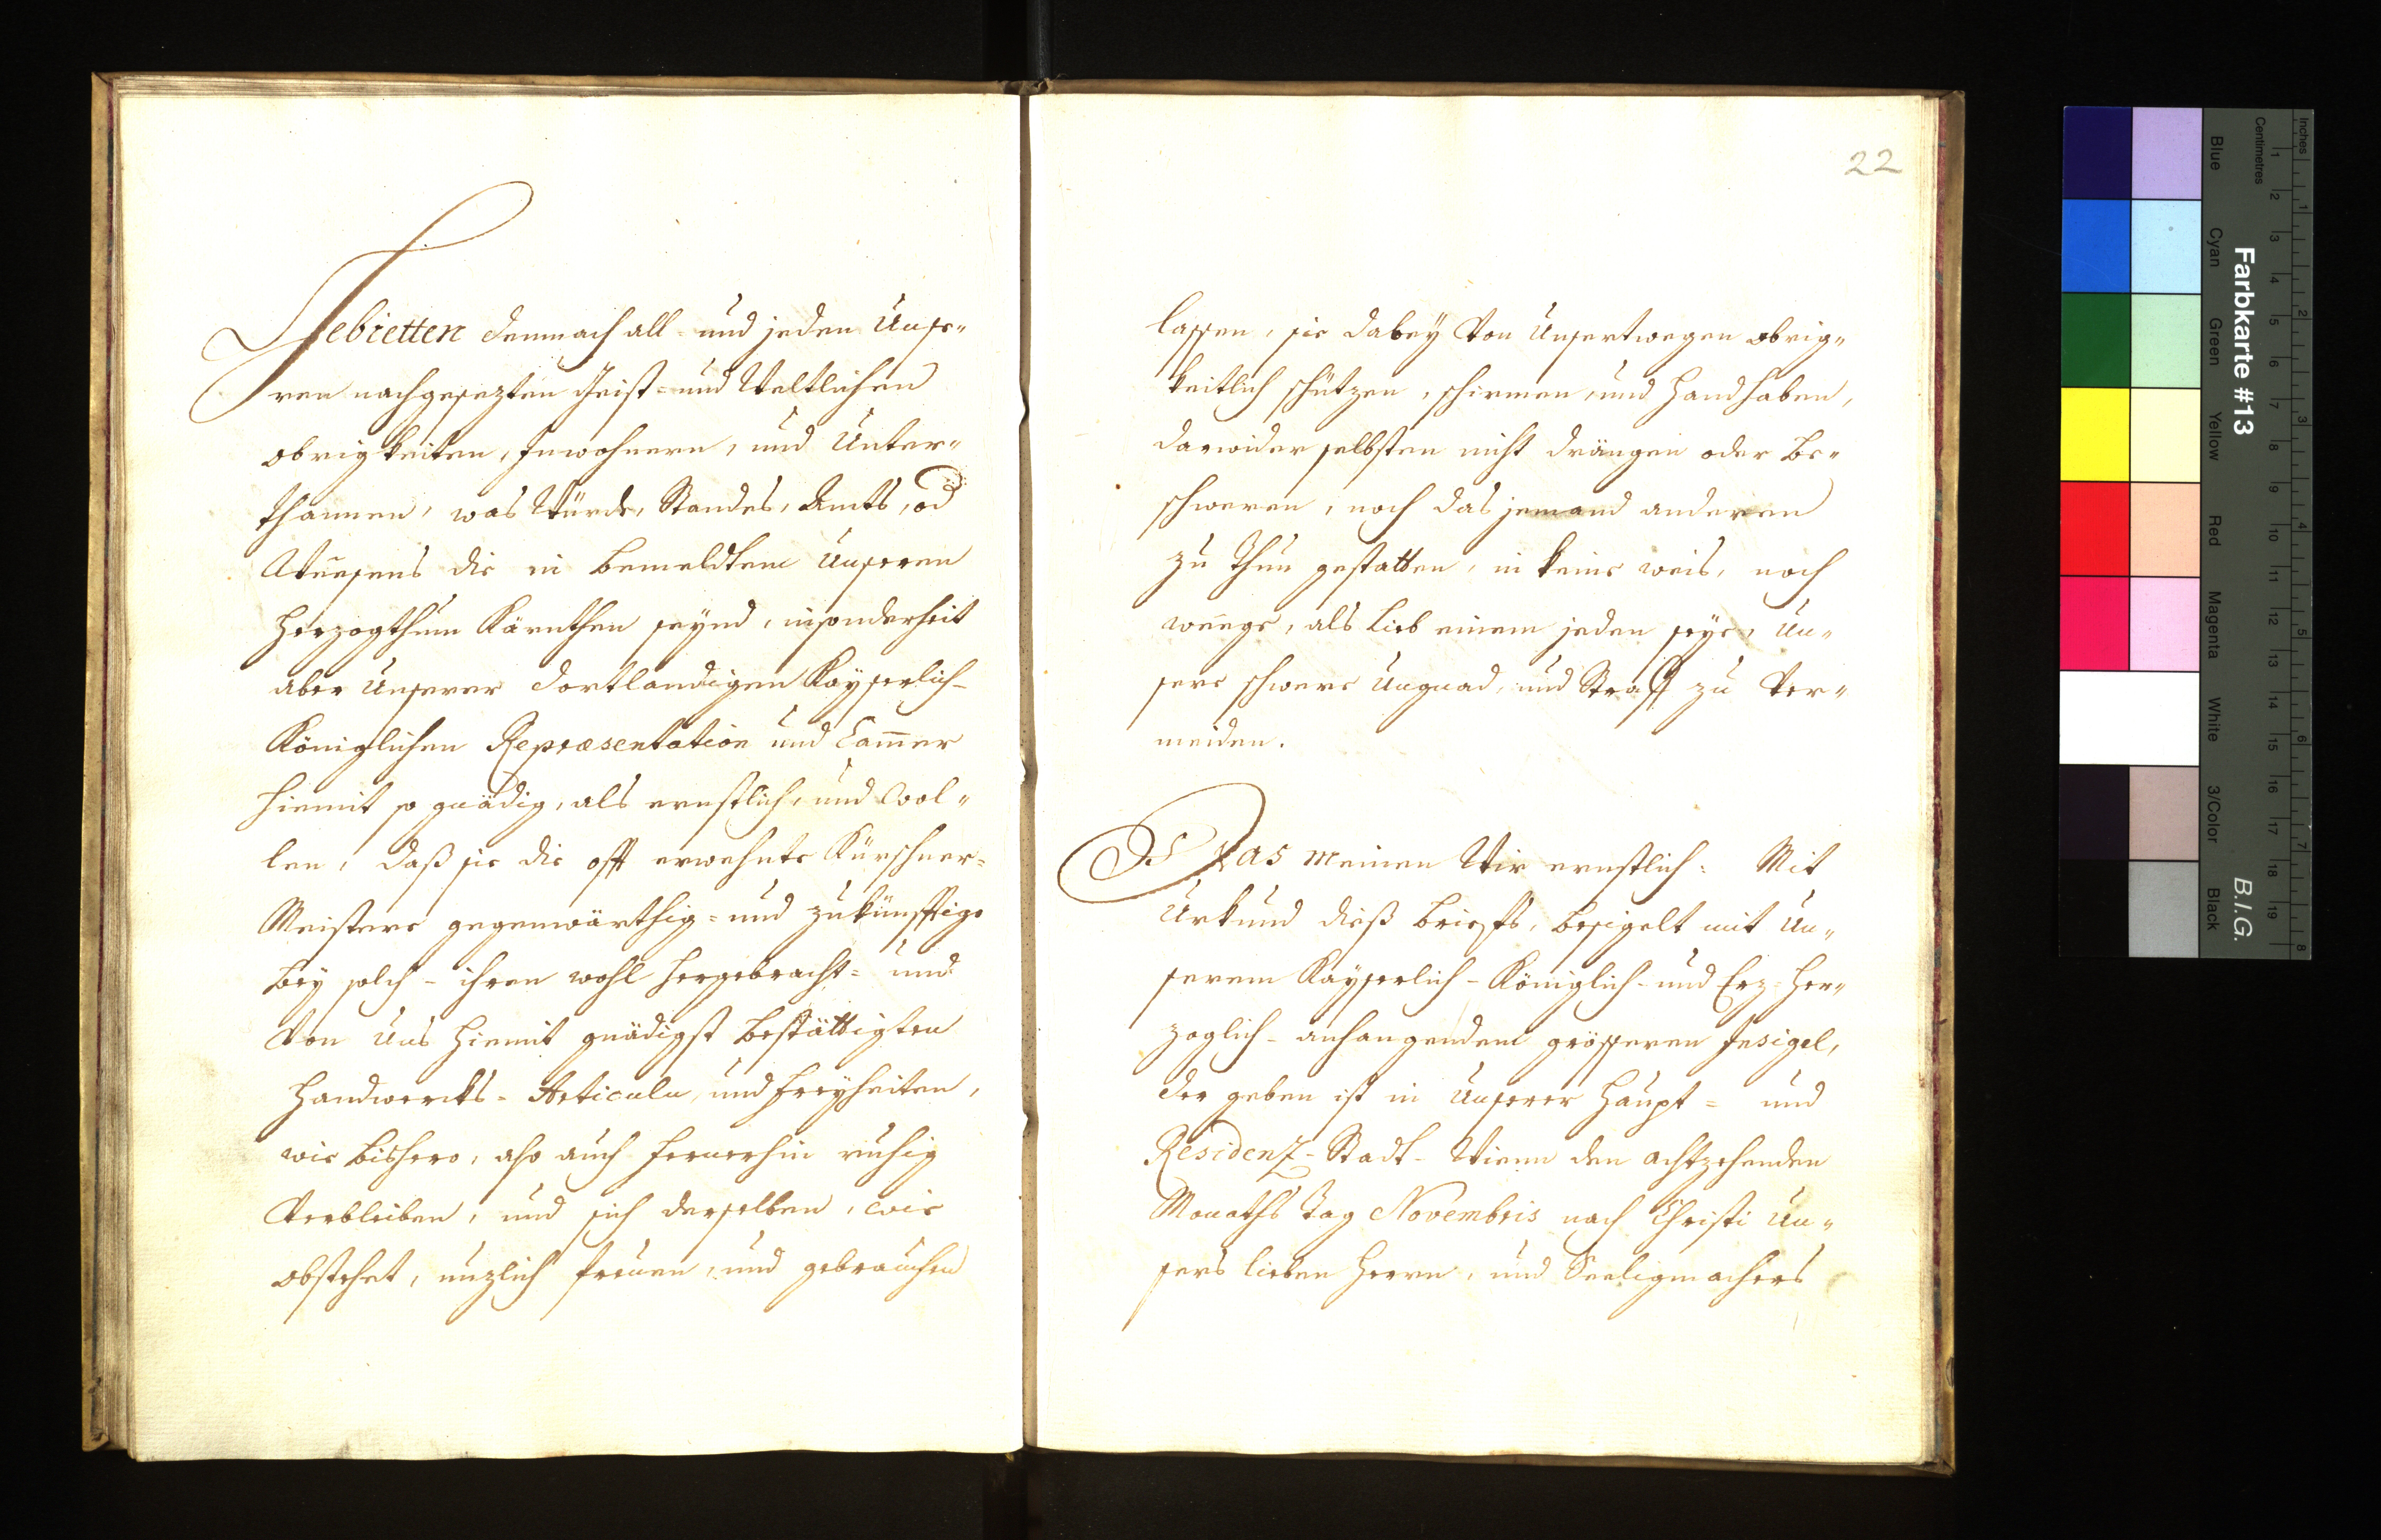 Gebietten demnach all- und jeden Unse-
ren nachgesezten Geist- und Weltlichen
obrigkeiten, Inwohnern, und Unter-
thannen, was Würde, Standes, Amts, od
Weesens die in bemeldtem Unseren
Herzogthum Kärnthen seynd, insonderheit
aber Unserer dortlandigen Kayserlich-
Königlichen Repræsentation und Cam̅er
hiemit so gnädig, als ernstlich, und wol-
len, daß sie die offt erwehnte Kürschner-
Meistere gegenwärthig- und zukünfftige
bey solch- ihren wohl hergebracht- und
von Uns hiemit gnädigst bestättigten
Handwercks- Articuln, und Freyheiten,
wie bishero, also auch fernerhin ruhig
verbleiben, und sich derselben, wie
obstehet, nuzlich freuen, und gebrauchen
22
lassen, sie dabeÿ von Unsertwegen obrig-
keitlich schützen, schirmen, und handhaben,
darwider selbsten nicht drängen oder be-
schweren, noch das jemand anderen
zu thun gestatten, in keine weis, noch
weege, als lieb einem jeden seye, Un-
sere schwere Ungnad, und Straff zu ver-
meiden.
Das meinen Wir ernstlich: Mit
Urkund dieß brieffs, besigelt mit Un-
serem Kayserlich- Königlich- und Erz-Her-
zoglich- anhangendem grösseren Insigel,
der geben ist in Unserer Haupt- und
Residenz- Stadt- Wienn den achtzehenden
Monaths Tag Novembris nach Christi Un-
sers lieben Herrn, und Seeligmachers
Farbkarte #13
B.I.G.
Inches
Centimetres
Blue
Cyan
Green
Yellow
Red
Magenta
White
3/Color
Black
1 2 3 4 5 6 7 8 9 10 11 12 13 14 15 16 17 18 19
1 2 3 4 5 6 7 8